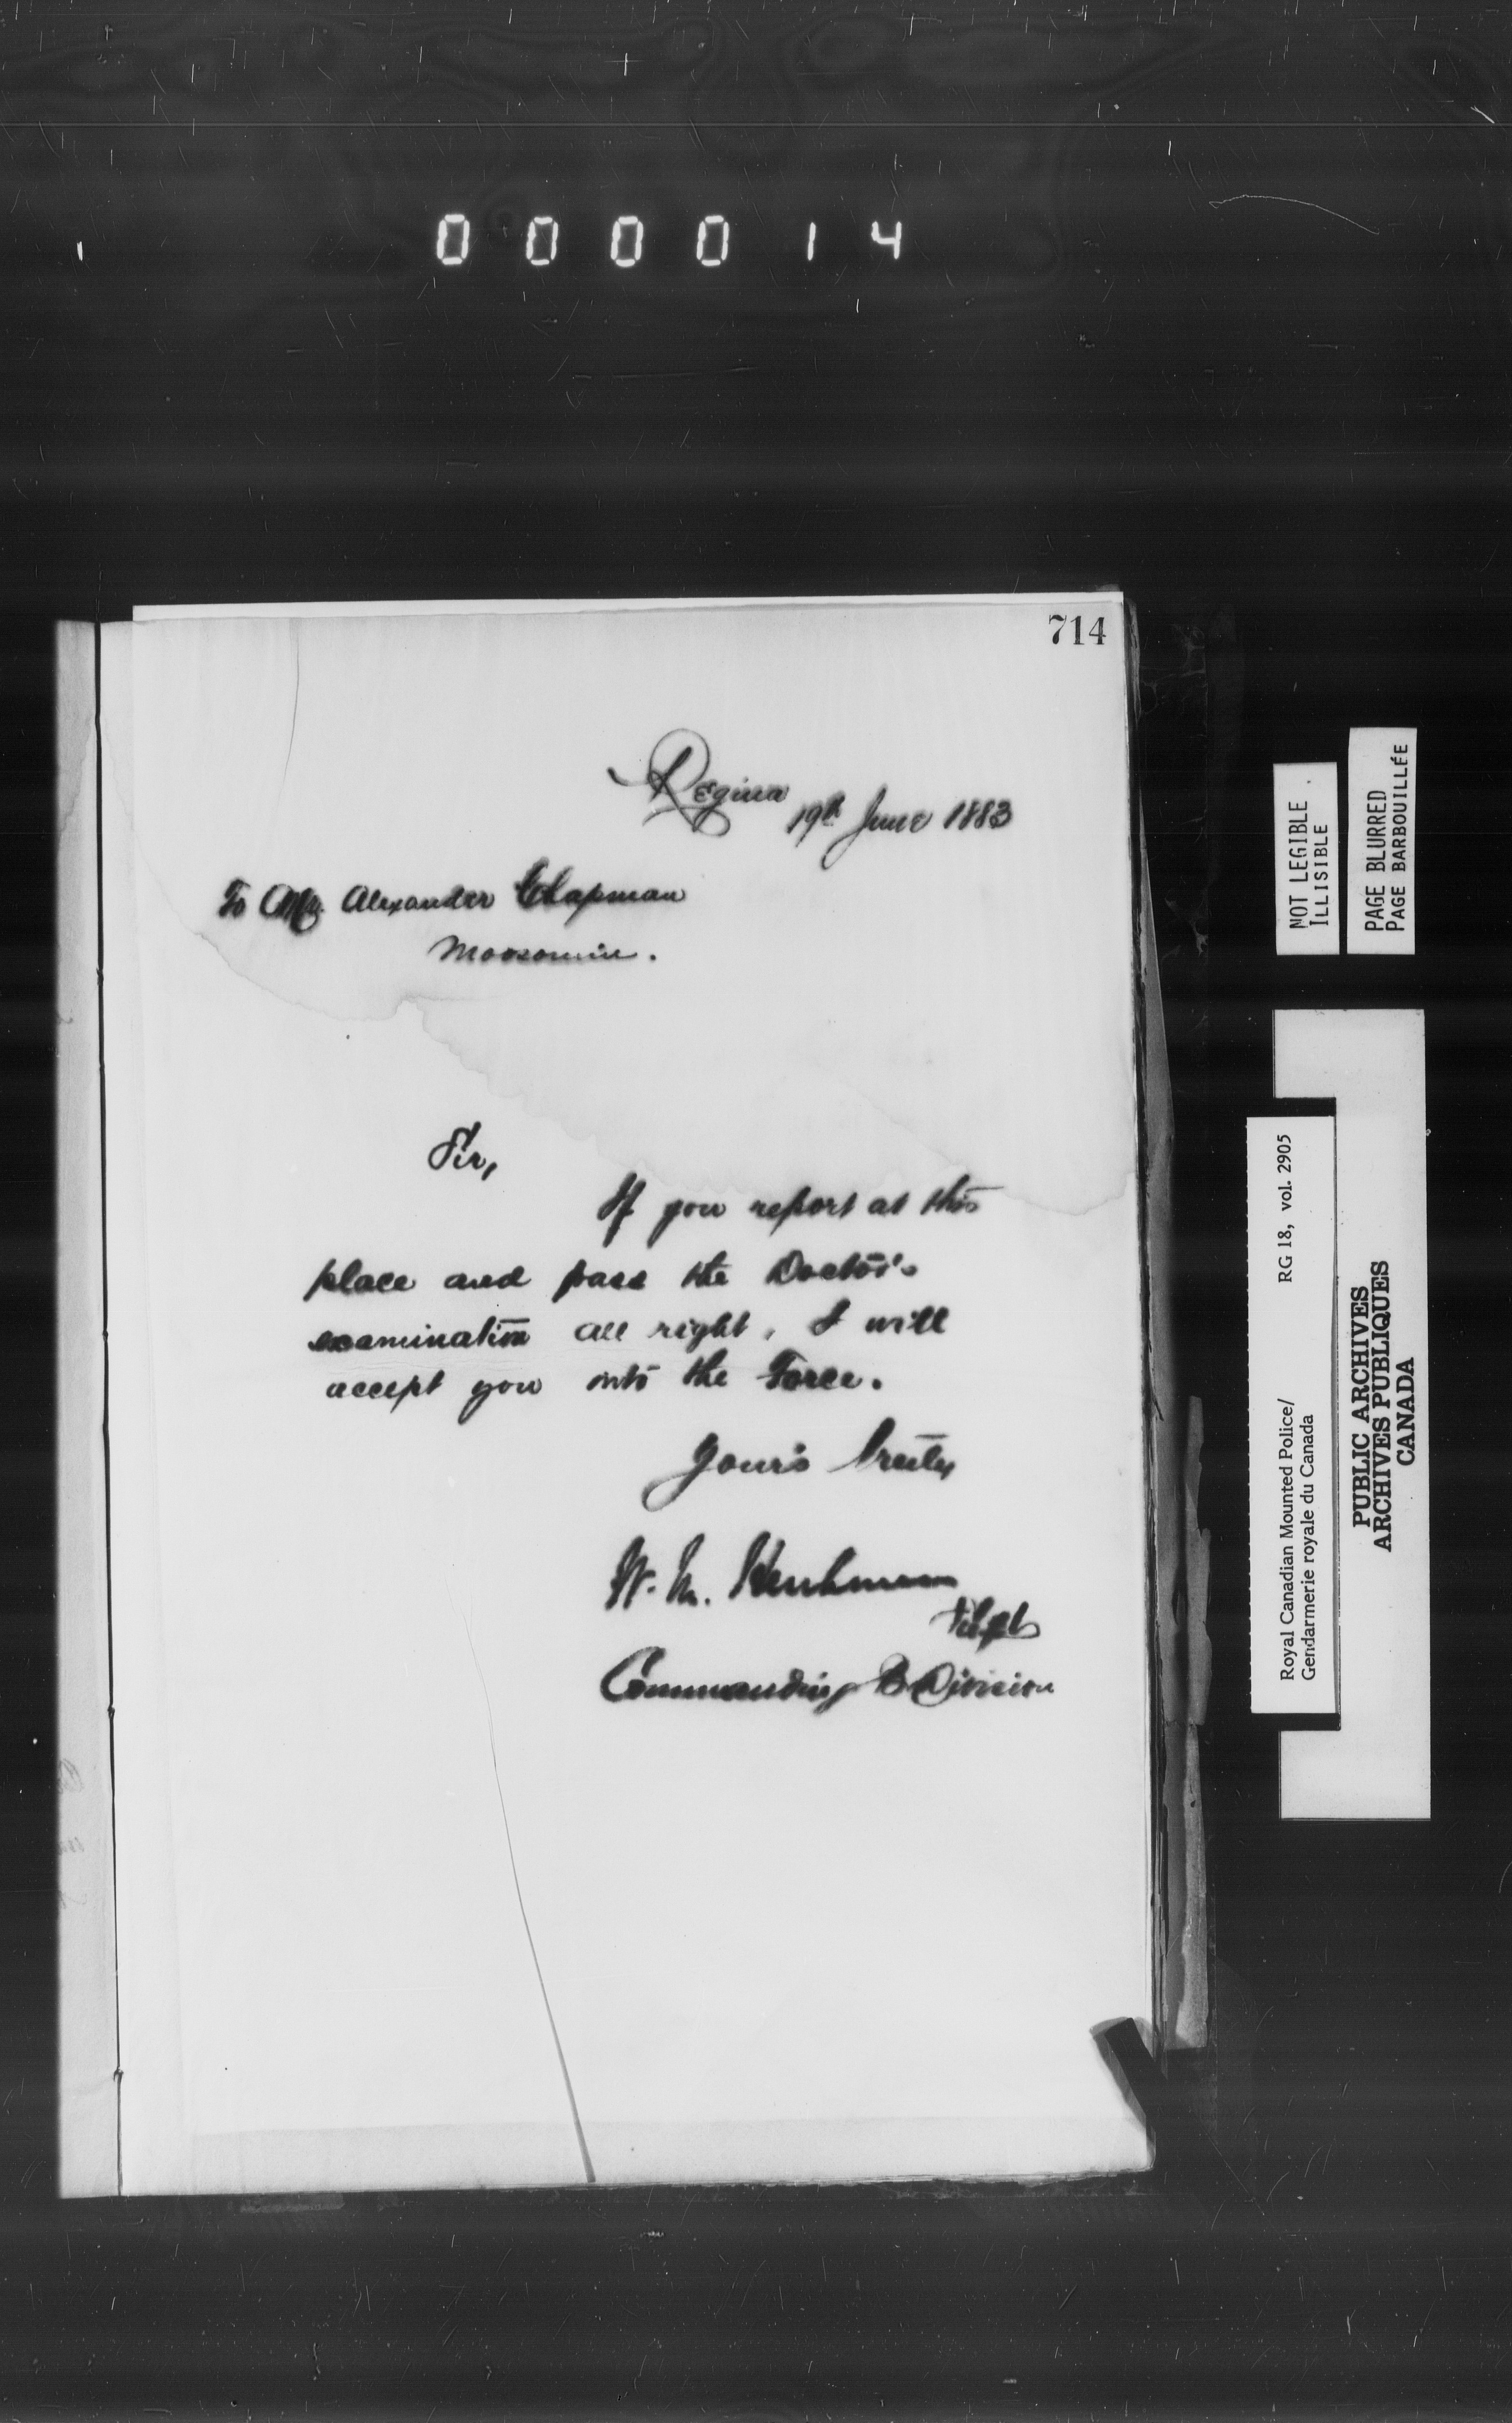 000014
714
Regina
19th June 1883
To Mr. Alexander Chapman
Moosomin.
Sir,
If you report at this
place and pass the Doctor's
examination all right, I will
accept you into the Force.
Yours truly
W. M. Herchmer
Supt
Commanding B Division
NOT LEGIBLE
ILLISIBLE
PAGE BLURRED
PAGE BARBOUILLÉE
Royal Canadian Mounted Police/ RG 18, vol. 2905
Gendarmerie royale du Canada
PUBLIC ARCHIVES
ARCHIVES PUBLIQUES
CANADA